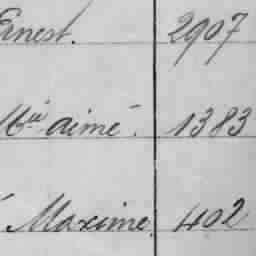 Ernest. 2907
Mie aimé. 1383
Maxime. 402